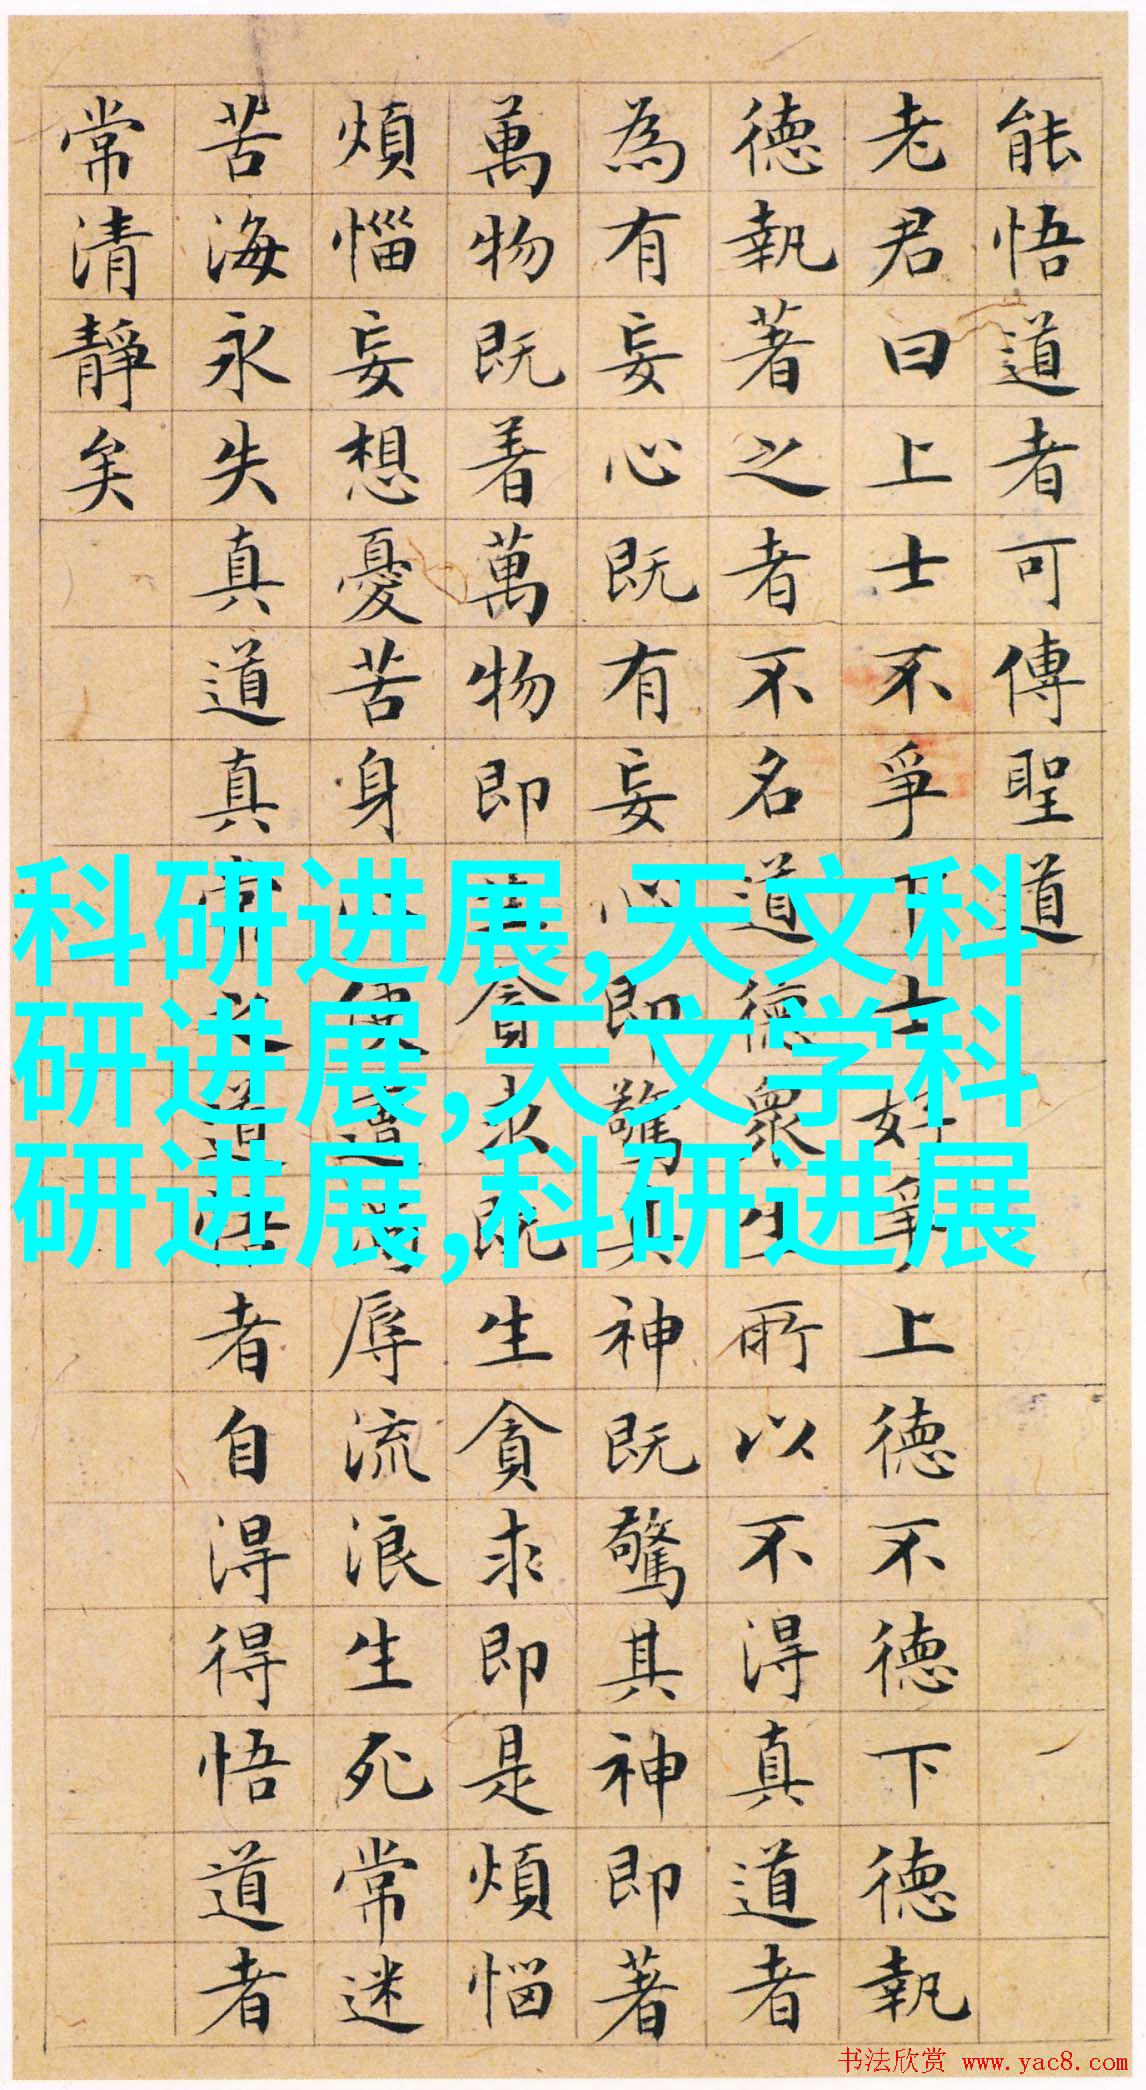 能悟道者可傳聖道
老君曰上士不爭下士好爭上德不德下德執
德執著之者不名道德眾生所以不得真道者
為有妄心既有妄心即驚其神既驚其神即著
萬物既着萬物即生貪求既生貪求即是煩惱
煩惱妄想憂苦身心便遭濁辱流浪生死常迷
苦海永失真道真常之道悟者自得得悟道者
常清靜矣
科研进展,天文科
研进展,天文学科
研进展,科研进展
书法欣赏 www.yac8.com